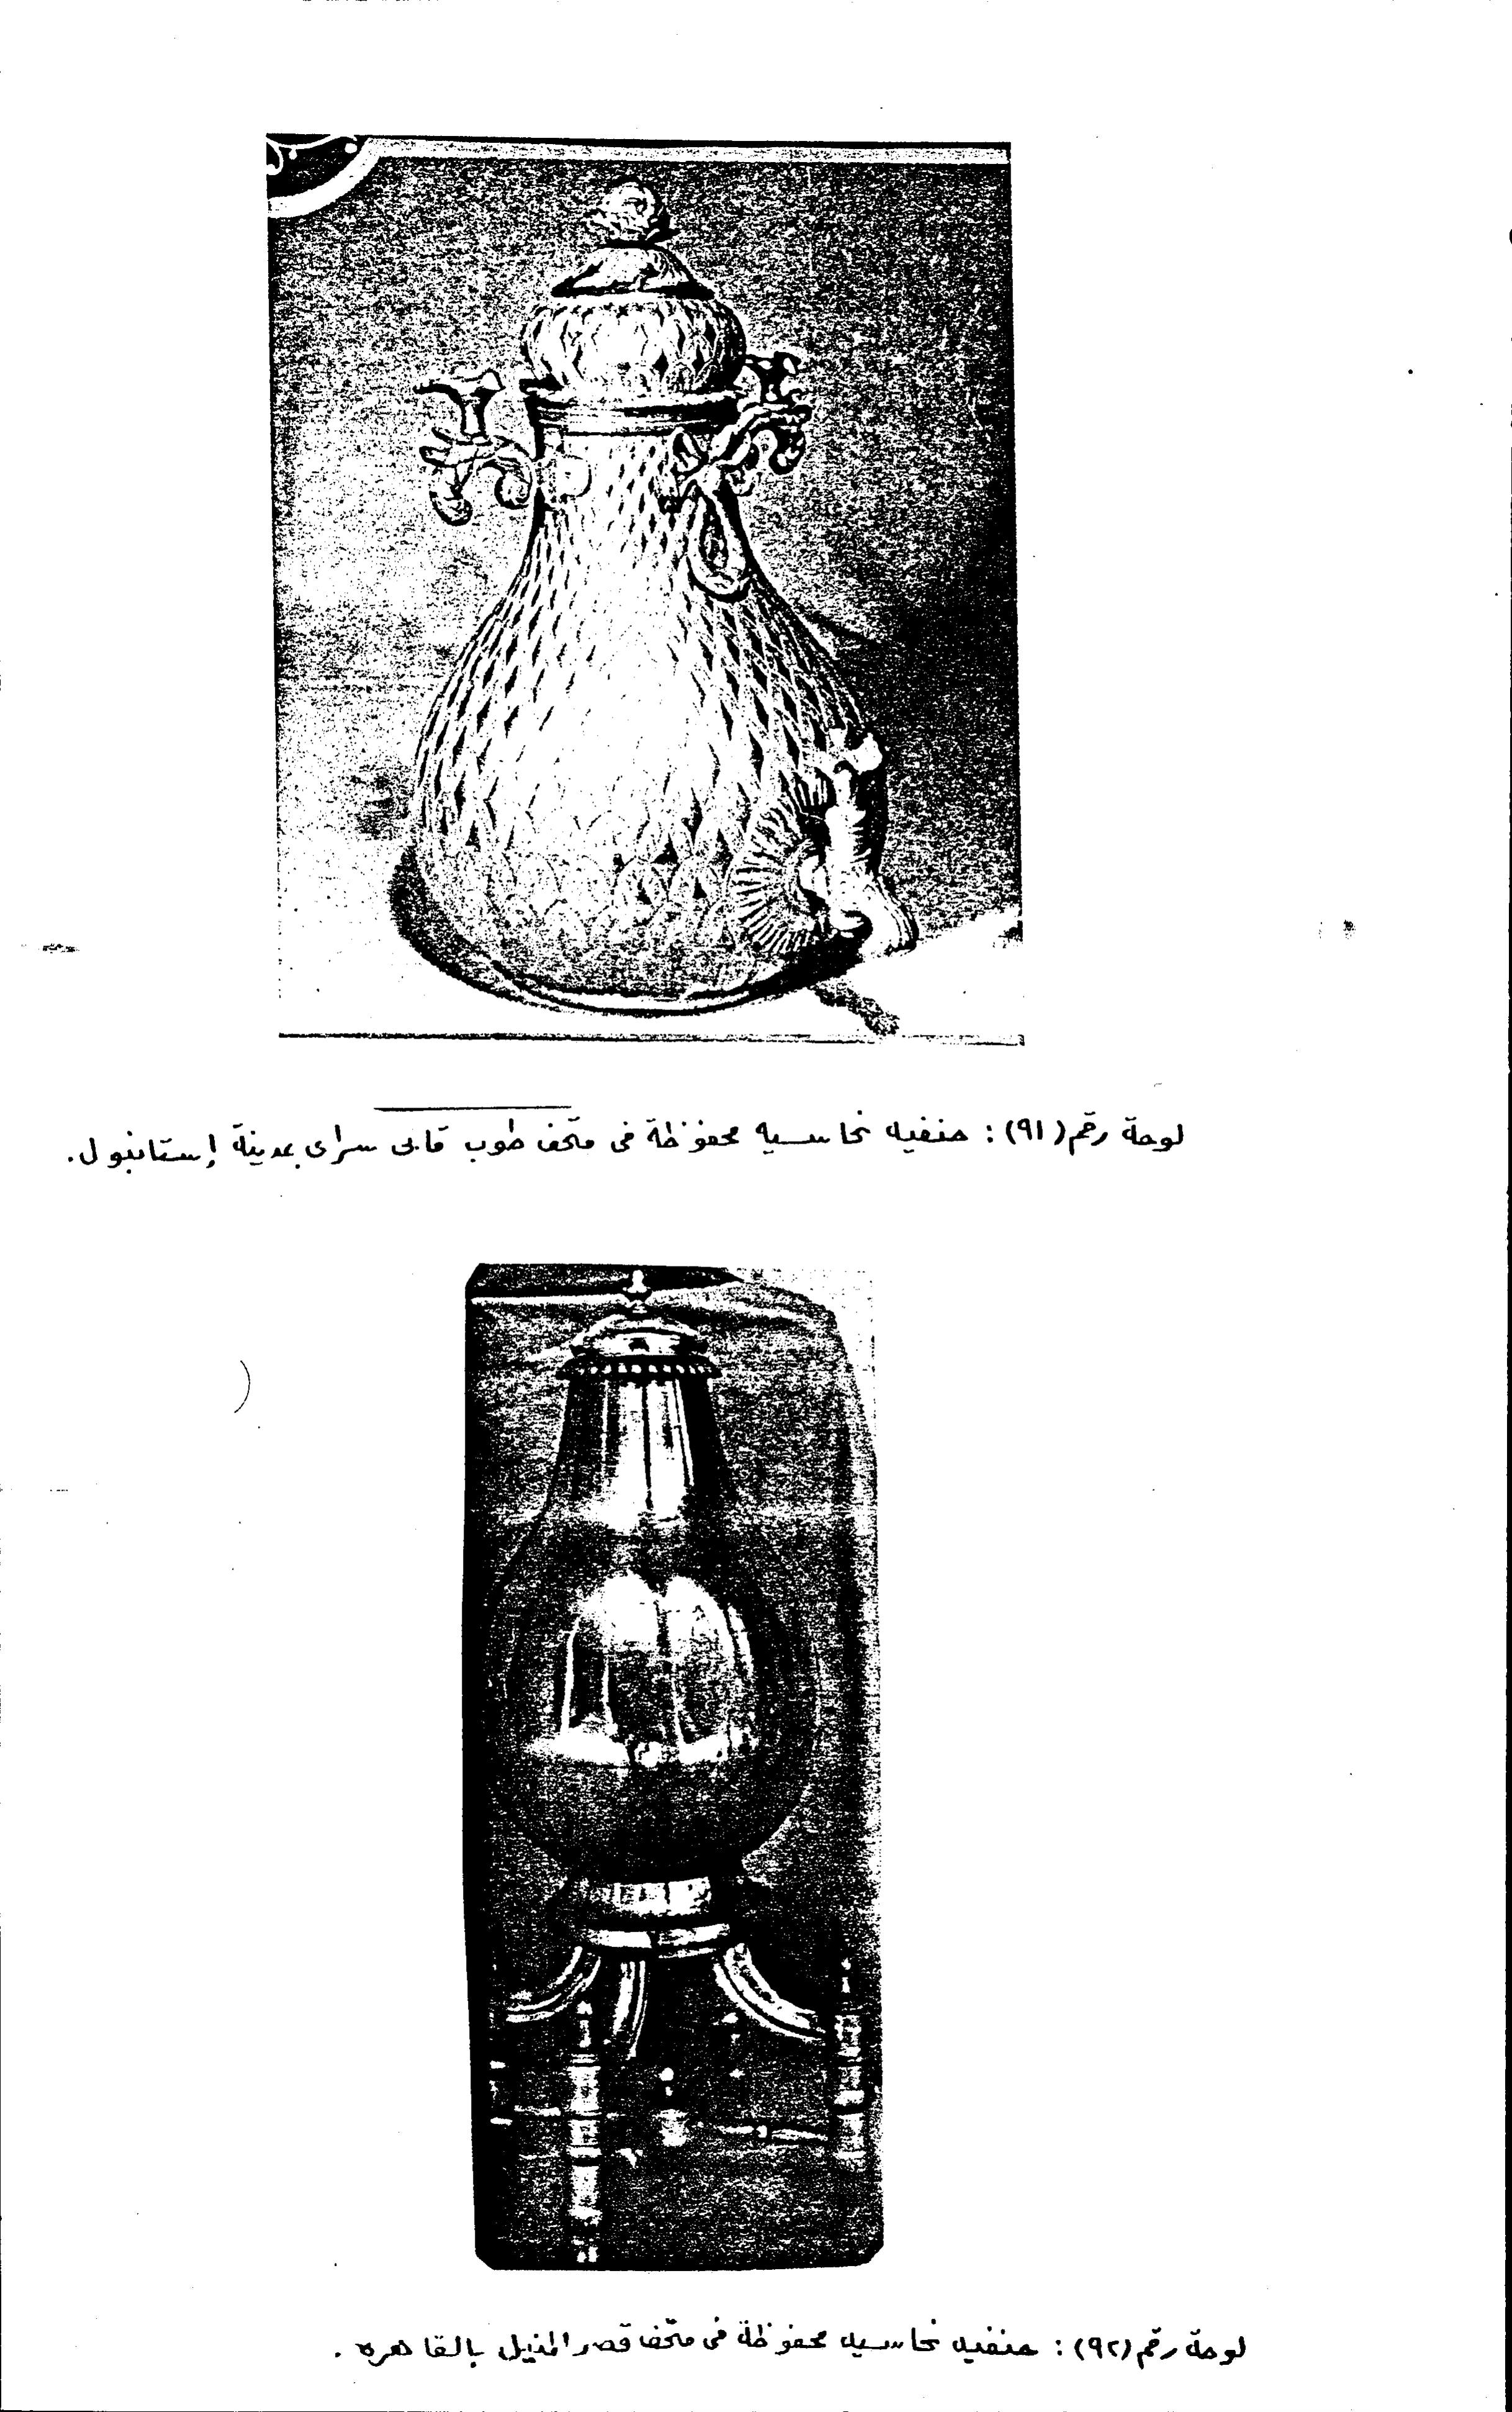 لوحة رقم (٩١) : حنفيه نحاسيه محفوظة فى متحف طوب قابى سراى بمدينة إستانبول .
لوحة رقم (٩٢) : حنفيه نحاسيه محفوظة فى متحف قصر المنيل بالقاهره .